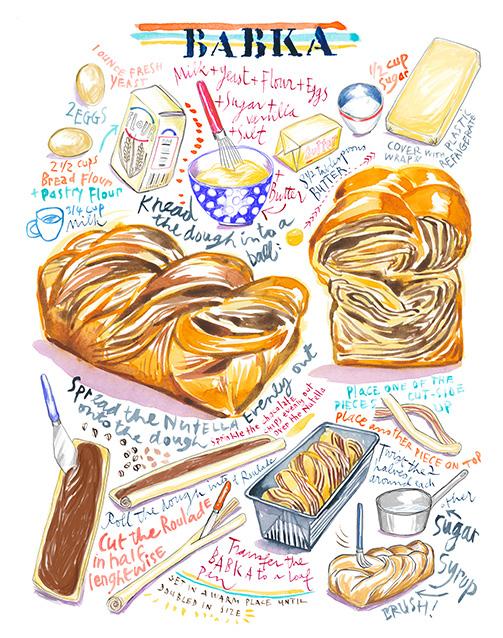 BABKA
1 OUNCE FRESH
YEAST
2 EGGS
2 1/2 cups
Bread Flour
+ Pastry Flour
3/4 cup
milk
Flour
Milk + yeast + Flour + Eggs
+ Sugar +
vanilla
+ Salt
Butter
1/2 cup
Sugar
BUTTER
+
Butter
COVER WITH PLASTIC
WRAP & REFRIGERATE
Knead
the dough into a
ball!
Spread the NUTELLA Evenly out
onto the dough
Sprinkle the chocolate
chips evenly out
over the Nutella
Roll the dough into a Roulade
Cut the Roulade
in half
lenghtwise
PLACE ONE OF THE
PIECES CUT-SIDE
UP
place another PIECE ON TOP
Twist the 2
halves
around each
other
Transfer the
BABKA to a loaf
pan
SET IN A WARM PLACE UNTIL
DOUBLED IN SIZE
Sugar
Syrop
BRUSH!